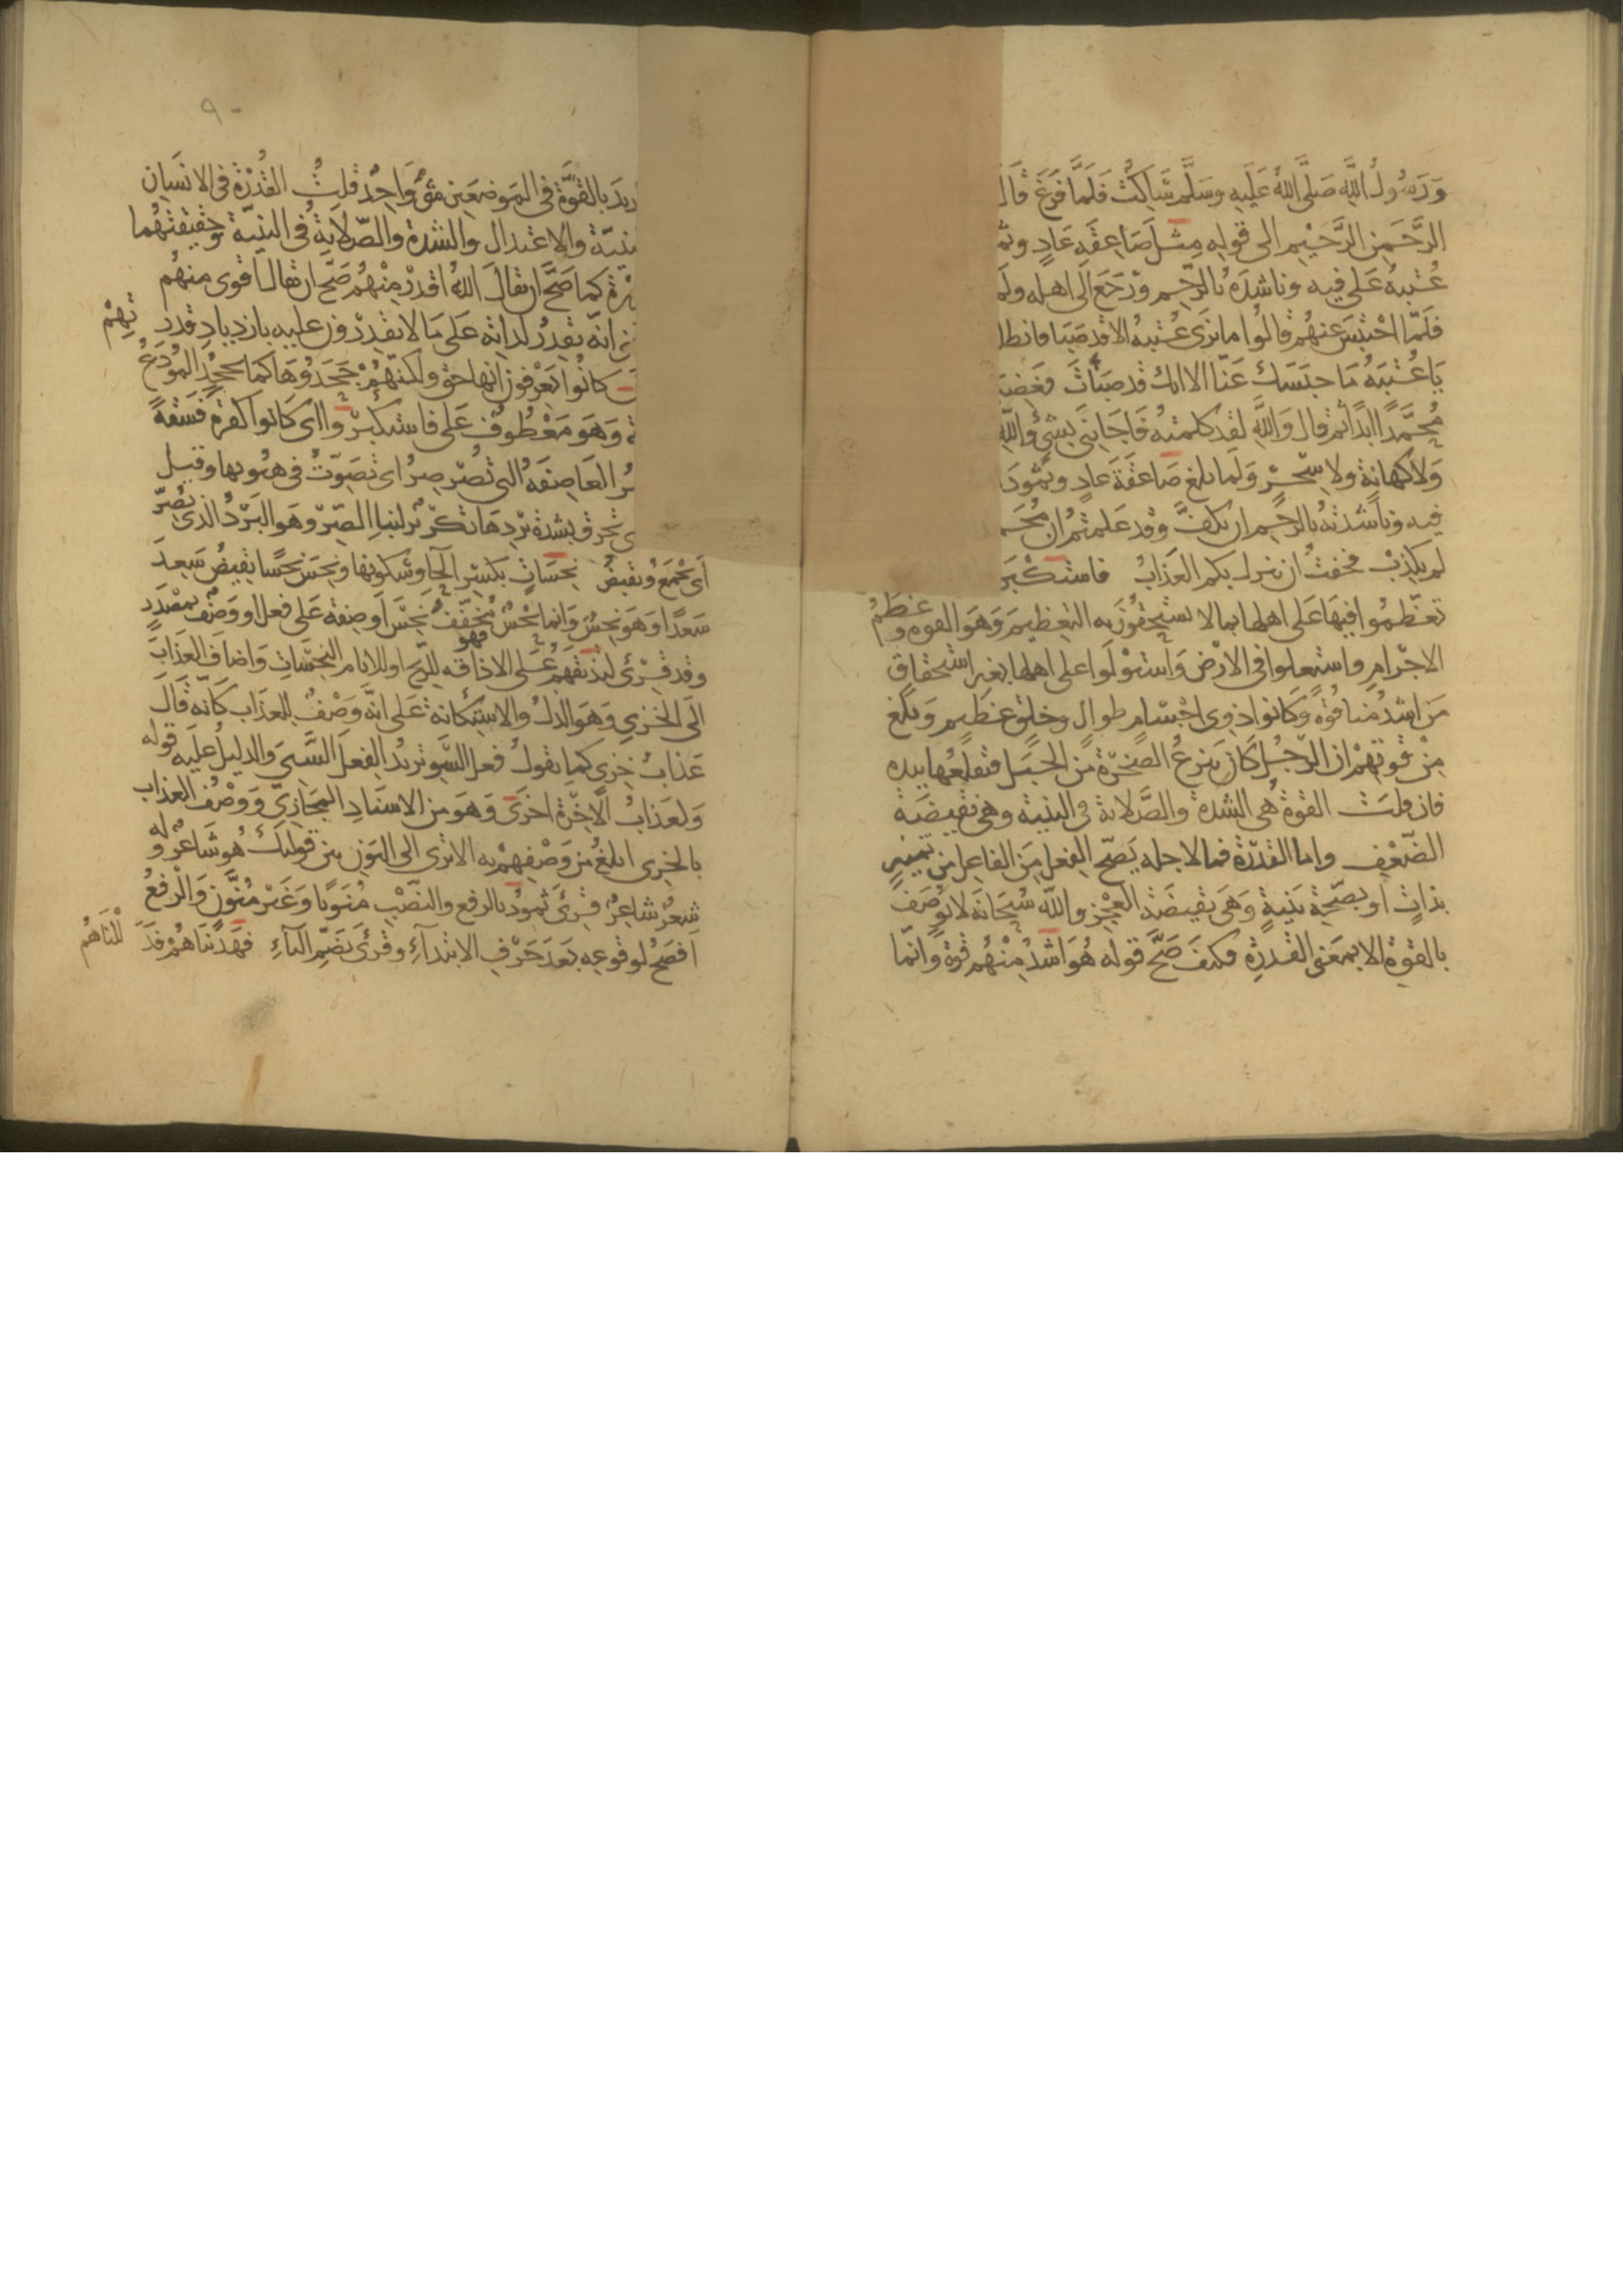 ورسول الله صلى الله عليه وسلم ساكت فلما فرغ قال
الرحمن الرحيم الى قوله مثل صاعقة عاد وثم
عتبة على فيه وناشده بالرحم ورجع الى اهله ولم
فلما احتبس عنهم قالوا ما نرى عتبة الا قد صبا فانطل
يا عتبة ما حبسك عنا الا انك قد صبأت فغضب
محمدا ابدا ثم قال والله لقد كلمته فاجابني بشئ والله
ولا كهانة ولا سحر ولما بلغ صاعقة عاد وثمود
فيه وناشدته بالرحم ان يكف وقد علمتم ان محم
لم يكذب فخفت ان ينزل بكم العذاب فاستكبر
تعظموا فيها على اهلها بما لا يستحقون به التعظيم وهو القوه وعظم
الاجرام واستعلوا في الارض واستولوا على اهلها بغير استحقاق
من اشد منا قوة وكانوا ذوى اجسام طوال وخلق عظيم وبلغ
من قوتهم ان الرجل كان ينزع الصخرة من الجبل فيقلعها بيده
فان قلت القوة هى الشدة والصلابة فى البنية وهى نقيضة
الضعف واما القدرة فما لاجله يصح الفعل من الفاعل من تميز
بذات او بصحة بنية وهى نقيضة العجز والله سبحانه لا يوصف
بالقوة الا بمعنى القدرة فكيف صح قوله هو اشد منهم قوة وانما
٩٠
ريد بالقوة فى الموضعين شئ واحد قلت القدرة فى الانسان
بنية والاعتدال والشدة والصلابة فى البنية وحقيقتهما
رة كما صح ان يقال الله اقدر منهم صح ان يقال اقوى منهم
انه يقدر لذاته على ما لا يقدرون عليه بازدياد قدرتهم
كانوا يعرفون انها حق ولكنهم جحدوها كما يجحد المودع
ة وهو معطوف على فاستكبروا اى كانوا كفرة فسقة
ر العاصفة التى تصرصر اى تصوت فى هبوبها وقيل
ى تحرق بشدة بردها تكرير لبناء الصر وهو البرد الذى يصر
اى يجمع ويقبض نحسات بكسر الحا وسكونها ونحس نحسا نقيض سعد
سعدا وهو نحس وانما نحس فهو مخفف نحس او صفة على فعل او وصف بمصدر
وقد قرئ لتذيقهم على الاذاقة للريح او للايام النحسات واضاف العذاب
الى الخزى وهو الذل والاستكانة على انه وصف للعذاب كانه قال
عذاب خزى كما تقول فعل السوء تريد الفعل السيئ والدليل عليه قوله
ولعذاب الاخرة اخزى وهو من الاسناد المجازى ووصف العذاب
بالخزى ابلغ من وصفهم به الا ترى الى البون بين قوليك هو شاعر وله
شعر شاعر قرئ ثمود بالرفع والنصب منونا وغير منون والرفع
افصح لوقوعه بعد حرف الابتداء وقرئ بضم الثاء فهديناهم فدللناهم